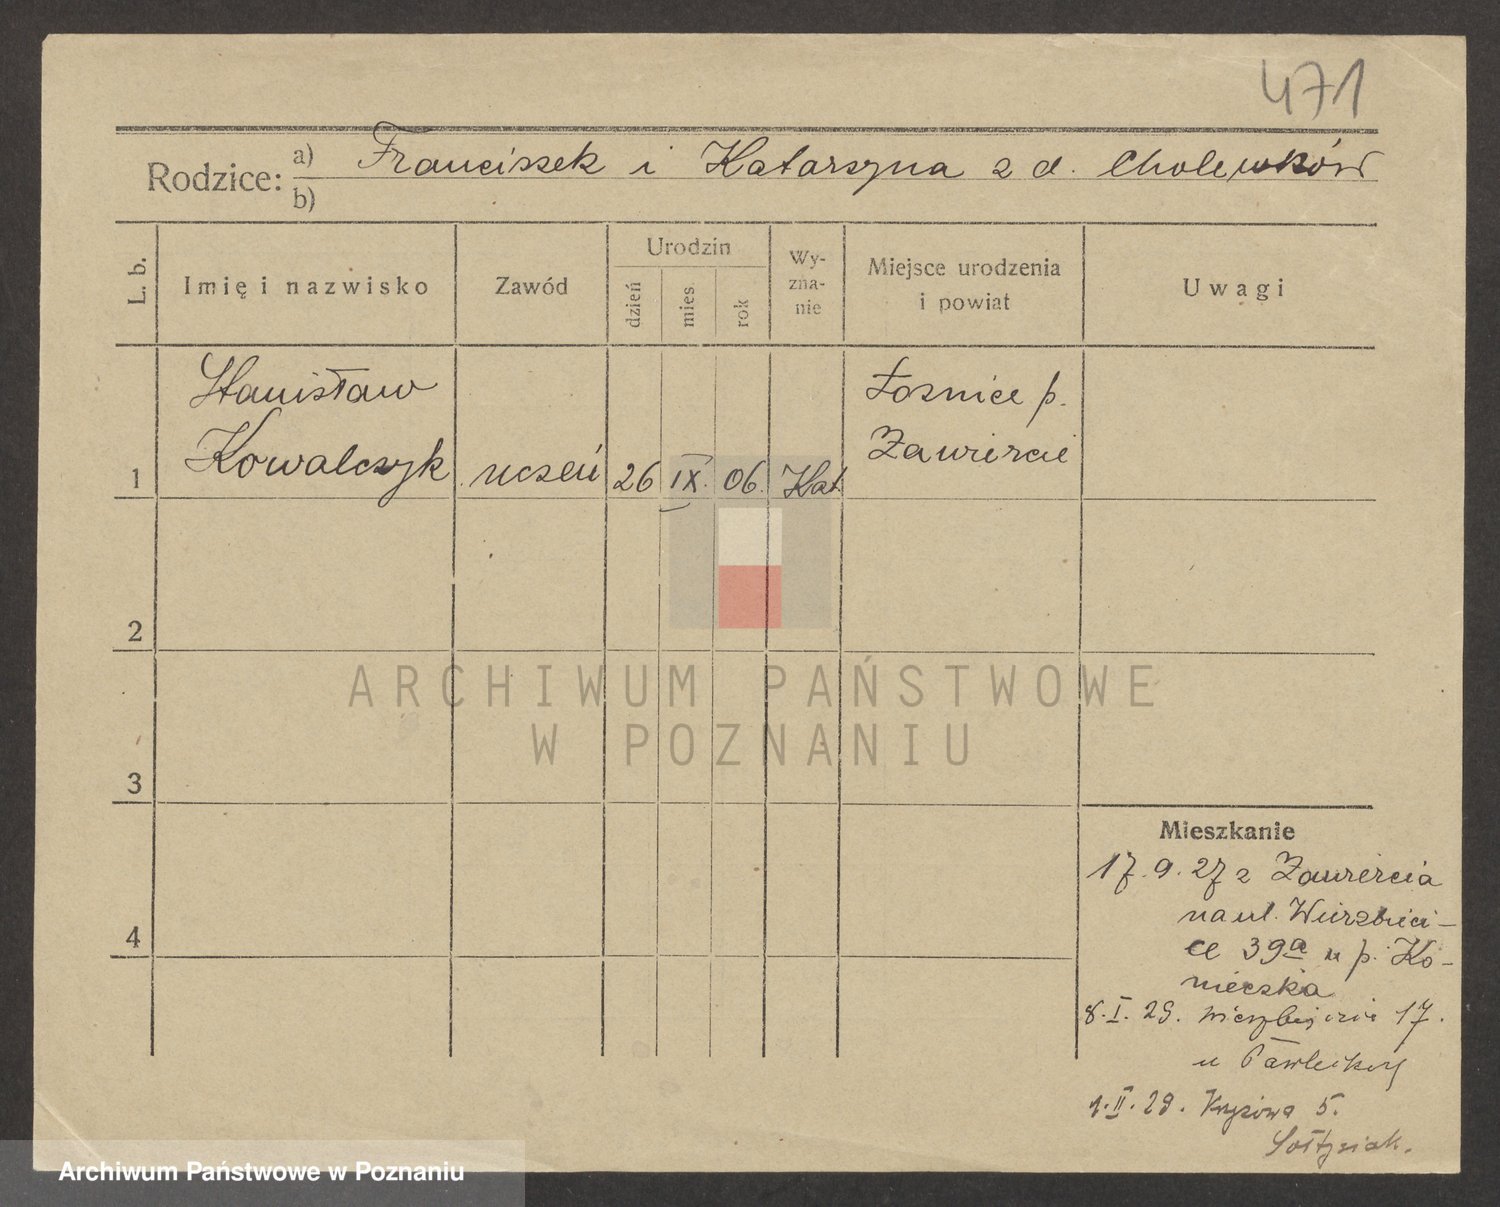 471
Rodzice: a) Franciszek i Katarzyna z d. Cholewków
b)
L. b.
Imię i nazwisko
Zawód
Urodzin
dzień
mies.
rok
Wy-
zna-
nie
Miejsce urodzenia
i powiat
Uwagi
1
Stanisław
Kowalczyk
uczeń
26
IX.
06.
Kat.
Łośnice p.
Zawiercie
2
3
4
Mieszkanie
17.9.27 z Zawiercia
na ul. Wierzbięci-
ce 39a u p. Ko-
nieczka
8.I.29. Wierzbięcice 17.
u Pawlickiej
1.II.29. Krzyżowa 5.
Sołtysiak.
ARCHIWUM PAŃSTWOWE
W POZNANIU
Archiwum Państwowe w Poznaniu